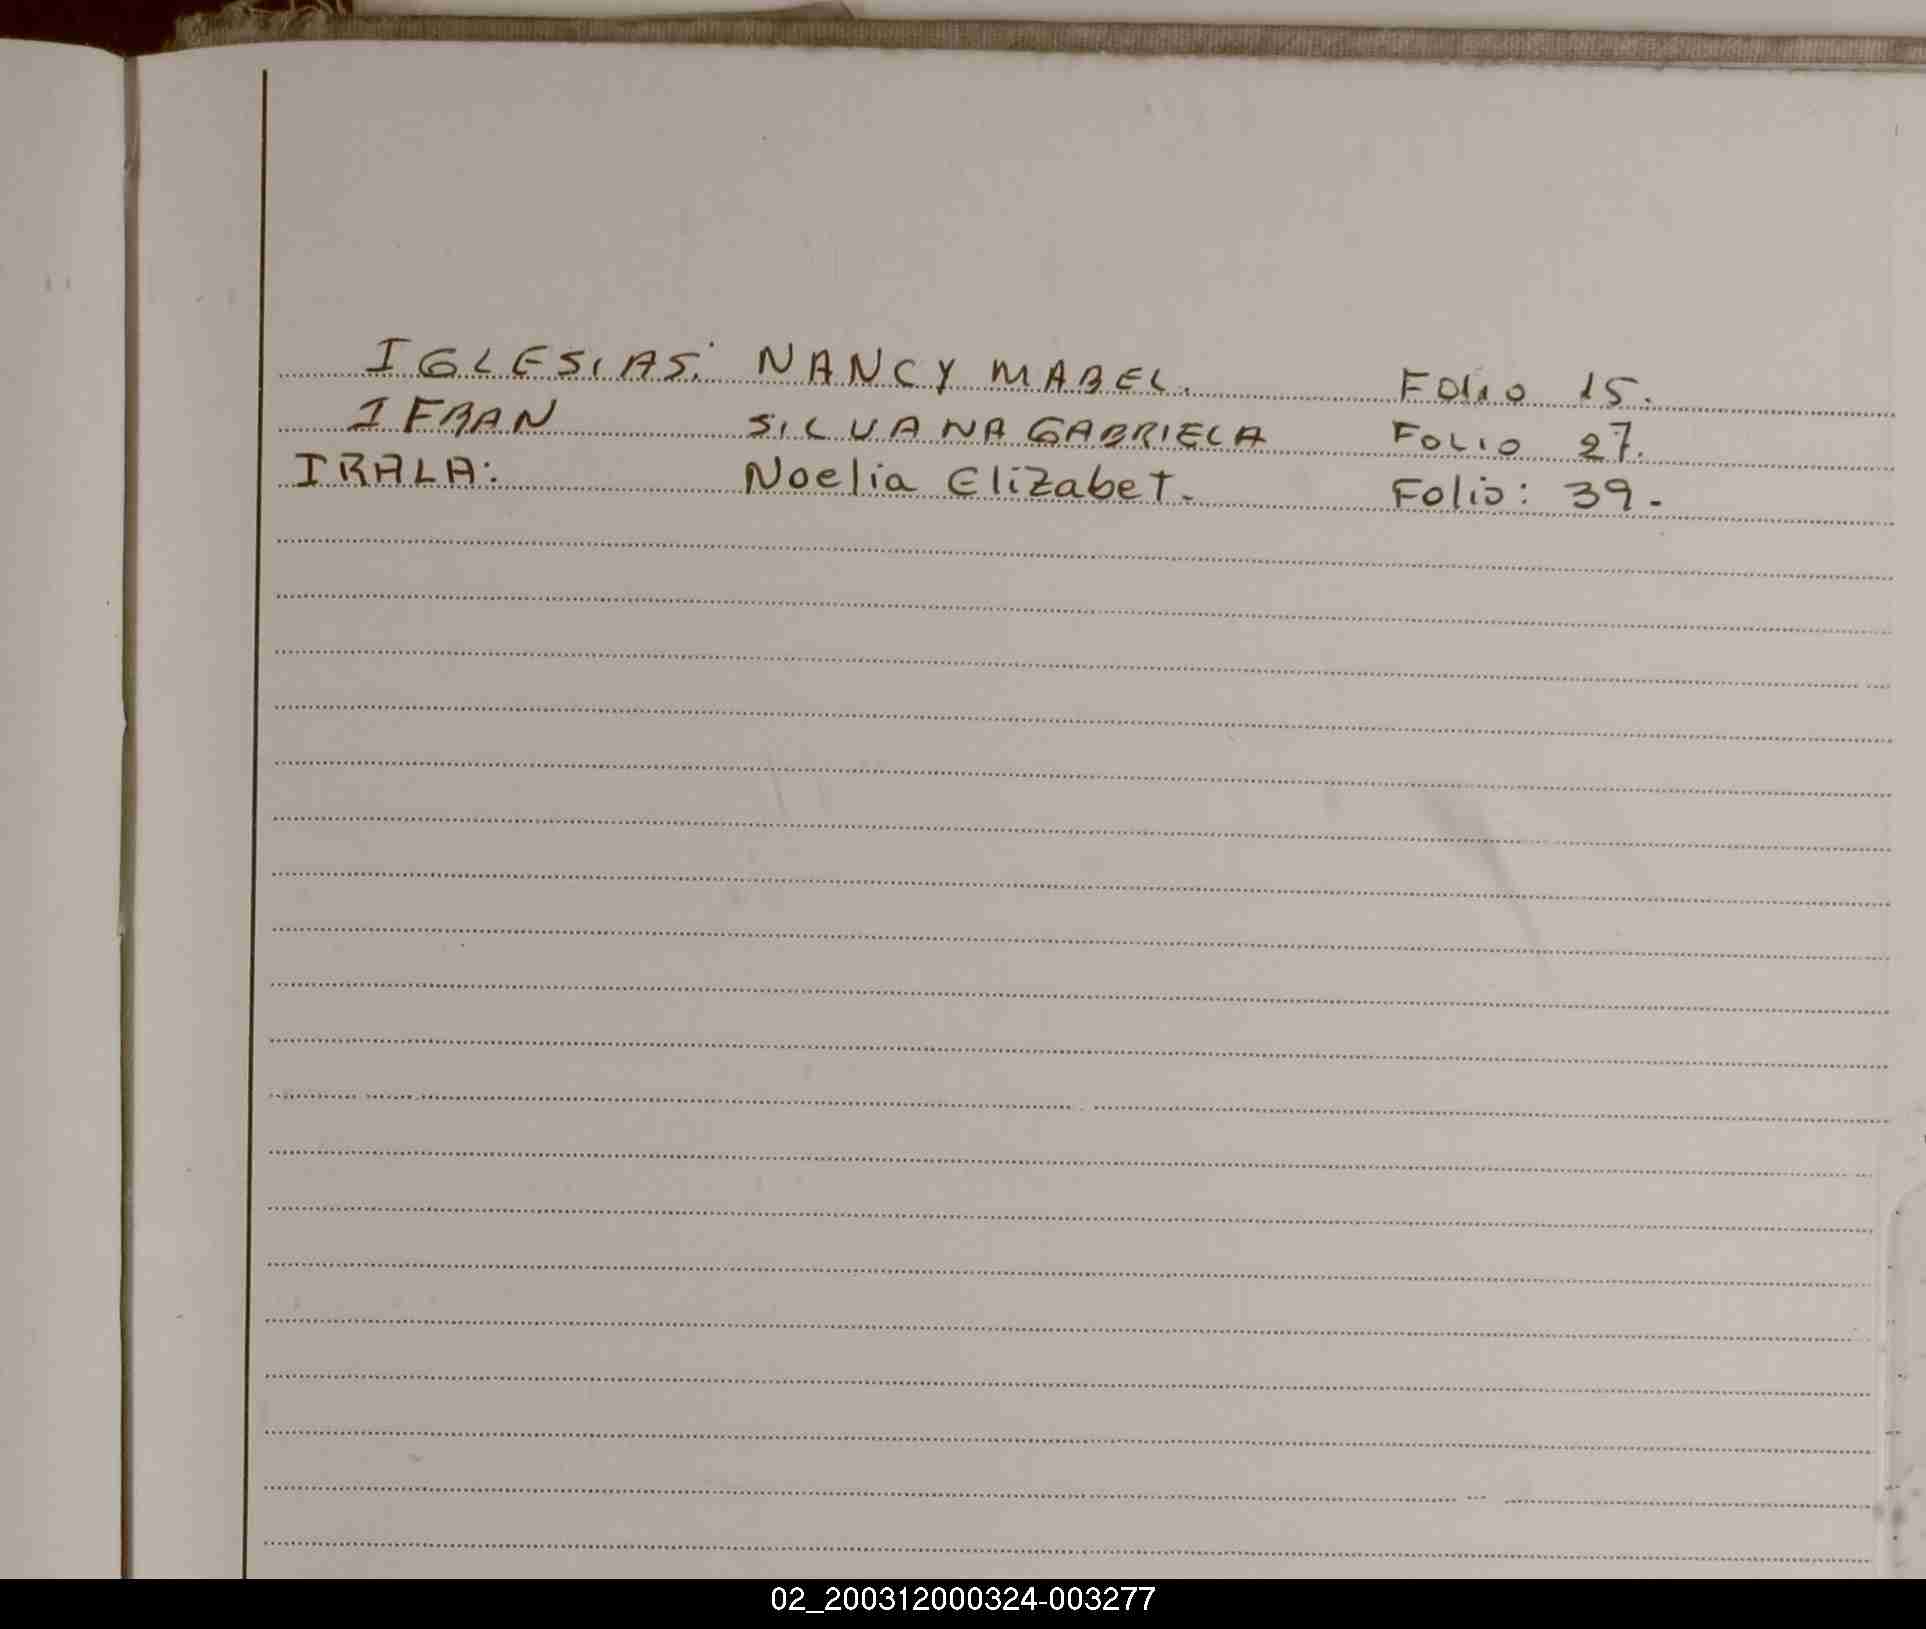 IGLESIAS: NANCY MABEL. Folio 15.
IFRAN SILVANA GABRIELA FOLIO 27.
IRALA: Noelia Elizabet. Folio: 39.-
02_200312000324-003277